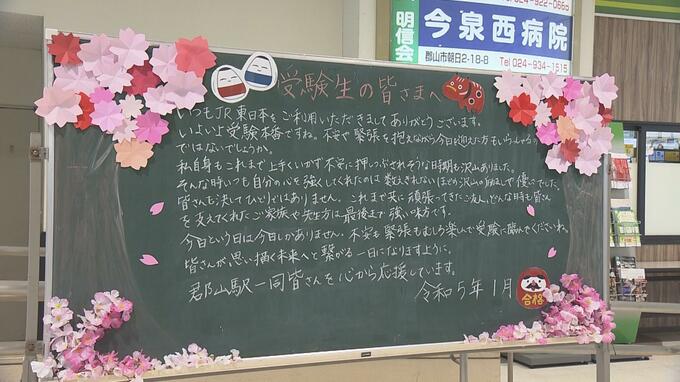 024-922-0666
明信会
今泉西病院
郡山市朝日2-18-8 Tel 024-934-1515
受験生の皆さまへ
いつもJR東日本をご利用いただきましてありがとうございます。
いよいよ受験本番ですね。不安や緊張を抱えながら今日を迎えた方もいらっしゃるの
ではないでしょうか。
私自身もこれまで上手くいかず不安に押しつぶされそうな時期も沢山ありました。
そんな時いつも自分の心を強くしてくれたのは数えきれないほどの沢山の励ましや優しさでした。
皆さんも決してひとりではありません。これまで共に頑張ってきたご友人、どんな時も皆さん
を支えてくれたご家族や先生方は最後まで強い味方です。
今日という日は今日しかありません。不安も緊張もむしろ楽しんで受験に臨んでくださいね。
皆さんが思い描く未来へと繋がる一日になりますように。
郡山駅一同皆さんを心から応援しています。
令和5年1月
合格